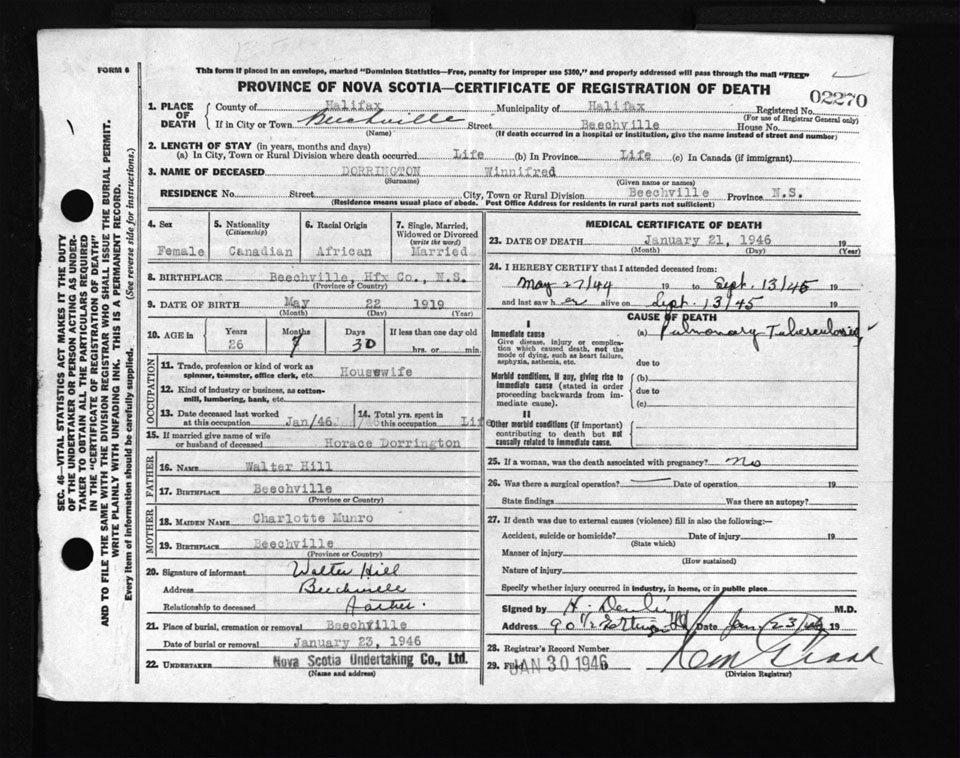 FORM 6
This form if placed in an envelope, marked "Dominion Statistics—Free, penalty for improper use $300," and properly addressed will pass through the mail "FREE"
PROVINCE OF NOVA SCOTIA—CERTIFICATE OF REGISTRATION OF DEATH
02270
1. PLACE OF DEATH
County of Halifax Municipality of Halifax Registered No.
(For use of Registrar General only)
If in City or Town Beechville Street Beechville House No.
(Name) (If death occurred in a hospital or institution, give the name instead of street and number)
2. LENGTH OF STAY (in years, months and days)
(a) In City, Town or Rural Division where death occurred Life (b) In Province Life (c) In Canada (if immigrant)
3. NAME OF DECEASED DORRINGTON Winnifred
(Surname) (Given name or names)
RESIDENCE No. Street City, Town or Rural Division Beechville Province N.S.
(Residence means usual place of abode. Post Office Address for residents in rural parts not sufficient)
4. Sex
Female
5. Nationality
(Citizenship)
Canadian
6. Racial Origin
African
7. Single, Married, Widowed or Divorced
(write the word)
Married
8. BIRTHPLACE Beechville, Hfx Co., N.S.
(Province or County)
9. DATE OF BIRTH May 22 1919
(Month) (Day) (Year)
10. AGE in
Years Months Days If less than one day old
26 7 30 hrs. or min.
OCCUPATION
11. Trade, profession or kind of work as
spinner, teamster, office clerk, etc. Housewife
12. Kind of industry or business, as cotton-
mill, lumbering, bank, etc.
13. Date deceased last worked
at this occupation Jan/46
14. Total yrs. spent in
this occupation Life
15. If married give name of wife
or husband of deceased Horace Dorrington
FATHER
16. NAME Walter Hill
17. BIRTHPLACE Beechville
(Province or Country)
MOTHER
18. MAIDEN NAME Charlotte Munro
19. BIRTHPLACE Beechville
(Province or Country)
20. Signature of informant Walter Hill
Address Beechville
Relationship to deceased Father.
21. Place of burial, cremation or removal Beechville
Date of burial or removal January 23, 1946
22. UNDERTAKER Nova Scotia Undertaking Co., Ltd.
(Name and address)
MEDICAL CERTIFICATE OF DEATH
23. DATE OF DEATH January 21, 1946 19
(Month) (Day) (Year)
24. I HEREBY CERTIFY that I attended deceased from:
May 27/44 19 to Sept. 13/45 19
and last saw her alive on Sept. 13/45 19
CAUSE OF DEATH
I
Immediate cause (a) Pulmonary Tuberculosis
Give disease, injury or complica-
tion which caused death, not the
mode of dying, such as heart failure,
asphyxia, asthenia, etc.
due to
Morbid conditions, if any, giving rise to
immediate cause (stated in order
proceeding backwards from im-
mediate cause).
(b)
due to
(c)
II
Other morbid conditions (if important)
contributing to death but not
causally related to immediate cause.
25. If a woman, was the death associated with pregnancy? No
26. Was there a surgical operation? — Date of operation 19
State findings Was there an autopsy?
27. If death was due to external causes (violence) fill in also the following:—
Accident, suicide or homicide? Date of injury 19
(State which)
Manner of injury
(How sustained)
Nature of injury
Specify whether injury occurred in industry, in home, or in public place
Signed by H. M.D.
Address 90 1/2 Date Jan 23 19
28. Registrar's Record Number
29. Filed JAN 30 1946
(Division Registrar)
SEC. 46—VITAL STATISTICS ACT MAKES IT THE DUTY
OF THE UNDERTAKER OR PERSON ACTING AS UNDER-
TAKER TO OBTAIN ALL THE PARTICULARS REQUIRED
IN THE "CERTIFICATE OF REGISTRATION OF DEATH"
AND TO FILE THE SAME WITH THE DIVISION REGISTRAR WHO SHALL ISSUE THE BURIAL PERMIT.
WRITE PLAINLY WITH UNFADING INK. THIS IS A PERMANENT RECORD.
Every item of information should be carefully supplied. (See reverse side for instructions.)